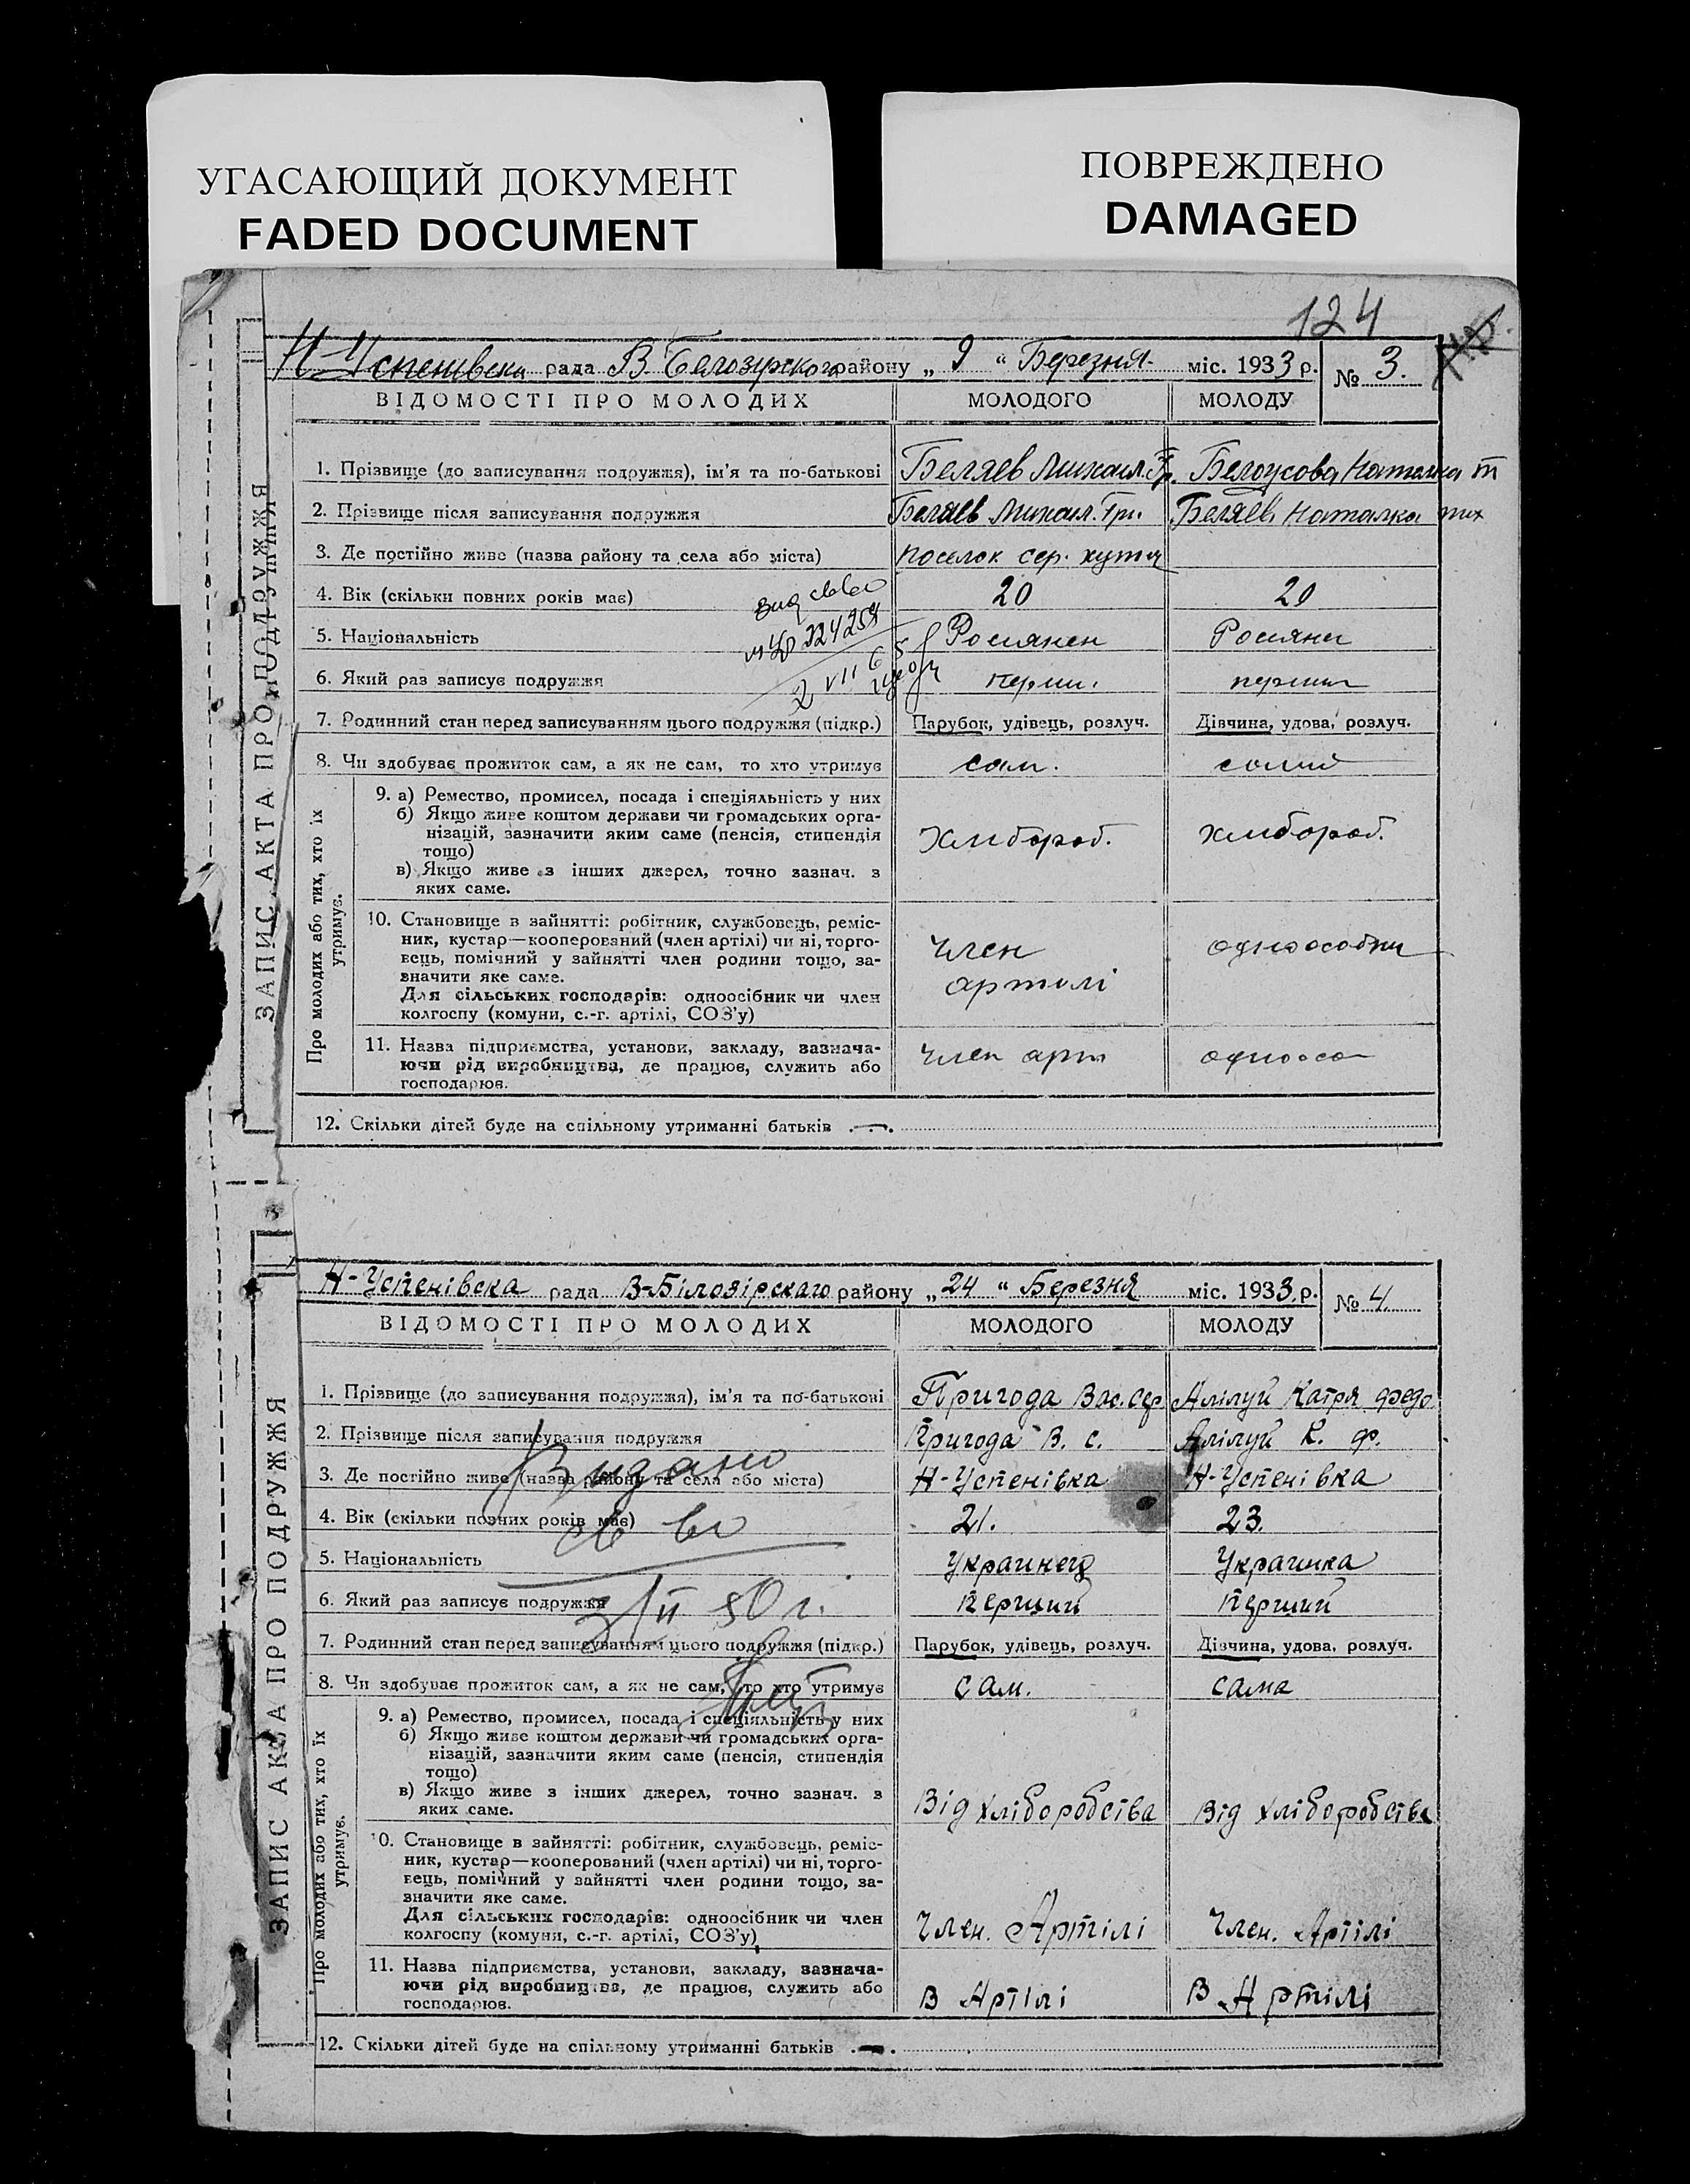 УГАСАЮЩИЙ ДОКУМЕНТ
FADED DOCUMENT
ПОВРЕЖДЕНО
DAMAGED
124
ЗАПИС АКТА ПРО ПОДРУЖЖЯ
рада В. Белозірского району „ 9 “ Березня міс. 1933 р. № 3.
ВІДОМОСТІ ПРО МОЛОДИХ МОЛОДОГО МОЛОДУ
1. Прізвище (до записування подружжя), ім'я та по-батькові Беляев Михаил Гр. Белоусова Наталка т
2. Прізвище після записування подружжя Беляев Михаил. Гри. Беляев Наталка тих
3. Де постійно живе (назва району та села або міста) поселок сер. хутя
4. Вік (скільки повних років має) 20 20
5. Національність Росиянен Росияни
6. Який раз записує подружжя перши. перший
7. Родинний стан перед записуванням цього подружжя (підкр.) Парубок, удівець, розлуч. Дівчина, удова, розлуч.
8. Чи здобуває прожиток сам, а як не сам, то хто утримує сам.
Про молодих або тих, хто їх утримує.
9. а) Ремество, промисел, посада і спеціяльність у них
б) Якщо живе коштом держави чи громадських орга-
нізацій, зазначити яким саме (пенсія, стипендія
тощо) Хлибороб. хлибороб.
в) Якщо живе з інших джерел, точно зазнач. з
яких саме.
10. Становище в зайнятті: робітник, службовець, реміс-
ник, кустар—кооперований (член артілі) чи ні, торго-
вець, помічний у зайнятті член родини тощо, за- член
значити яке саме. артилі
Для сільських господарів: одноосібник чи член
колгоспу (комуни, с.-г. артілі, СОЗ'у)
11. Назва підприємства, установи, закладу, зазнача- член арт
ючи рід виробництва, де працює, служить або
господарює.
12. Скільки дітей буде на спільному утриманні батьків —
ЗАПИС АКТА ПРО ПОДРУЖЖЯ
Н-Успенівска рада В-Білозірскаго району „ 24 “ Березня міс. 1933 р. № 4
ВІДОМОСТІ ПРО МОЛОДИХ МОЛОДОГО МОЛОДУ
1. Прізвище (до записування подружжя), ім'я та по-батькові Пригода Вас. Сер Алілуй Катря Федо.
2. Прізвище після записування подружжя Пригода В. С. Алілуй К. Ф.
3. Де постійно живе (назва району та села або міста) Н-Успенівка Н-Успенівка
Видано
4. Вік (скільки повних років має) 21. 23.
св во
5. Національність Украинец Украинка
6. Який раз записує подружжя Перший Перший
3/II 50 г.
7. Родинний стан перед записуванням цього подружжя (підкр.) Парубок, удівець, розлуч. Дівчина, удова, розлуч.
8. Чи здобуває прожиток сам, а як не сам, то хто утримує сам. сама
Про молодих або тих, хто їх утримує.
9. а) Ремество, промисел, посада і спеціяльність у них
б) Якщо живе коштом держави чи громадських орга-
нізацій, зазначити яким саме (пенсія, стипендія
тощо)
в) Якщо живе з інших джерел, точно зазнач. з
яких саме. Від хліборобства Від хліборобства
10. Становище в зайнятті: робітник, службовець, реміс-
ник, кустар—кооперований (член артілі) чи ні, торго-
вець, помічний у зайнятті член родини тощо, за-
значити яке саме.
Для сільських господарів: одноосібник чи член
колгоспу (комуни, с.-г. артілі, СОЗ'у) Член. Артілі Член. Артілі
11. Назва підприємства, установи, закладу, зазнача-
ючи рід виробництва, де працює, служить або
господарює. В Артілі В Артілі
12. Скільки дітей буде на спільному утриманні батьків —